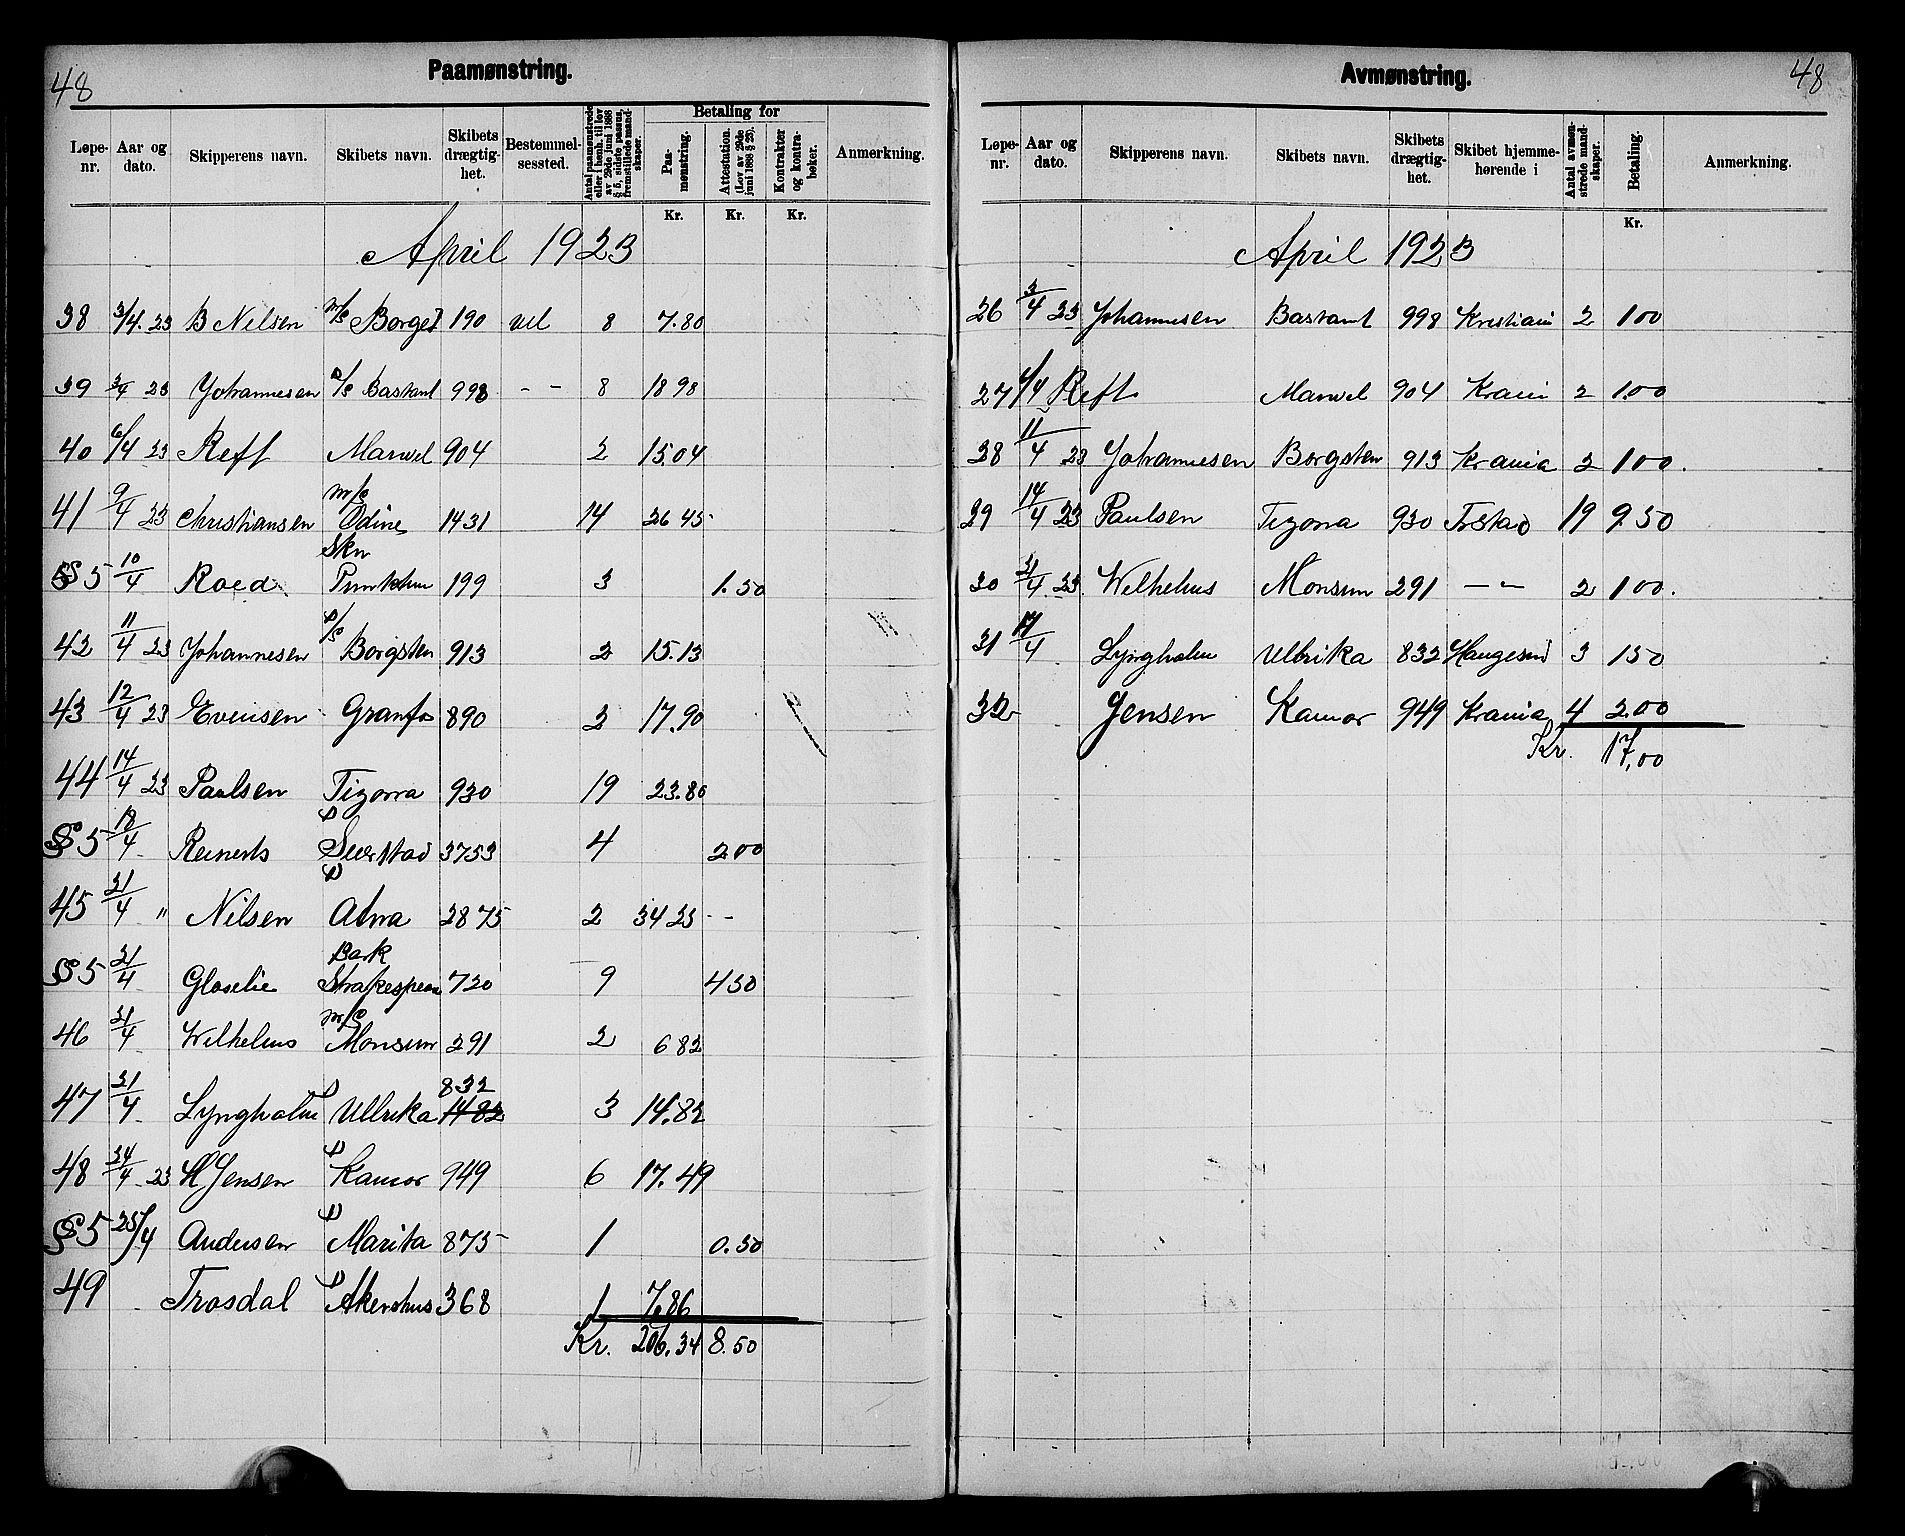 48
Paamønstring.
Løpe-nr. Aar og dato. Skipperens navn. Skibets navn. Skibets drægtig-het. Bestemmel-sessted. Antal paamønstrede eller i henh. til lov av 29de juni 1888 § 5, sidste passus, fremstillede mand-skaper. Betaling for Paa-mønstring. Attestation. (Lov av 29de juni 1888 § 25). Kontrakter og kontra-bøker. Anmerkning.
Kr. Kr. Kr.
April 1923
38 3/4. 23 B Nilsen m/s Borgef 190 ud 8 7.80
39 3/4 23 Johannesen D/S Bastant 998 - - 8 18 98
40 6/4 23 Reff Manvel 904 2 15.04
41 9/4 23 Christiansen m/s Odine 1431 14 26 45
§ 5 10/4 Roed Skn 199 3 1.50
42 11/4 23 Johannesen D/S Borgsten 913 2 15.13
43 12/4 23 Evensen Granfos 890 2 17.90
44 14/4 23 Paulsen Tizona 930 19 23.80
§ 5 18/4 Reinerts D 3753 4 2 00
45 21/4 " Nilsen D Alma 2875 2 34 23 - -
§ 5 21/4 Bark 720 9 4 50
46 21/4 Wilhelms m/s Monsun 291 2 6 82
47 21/4 Lyngholm D Ullrika 832 1482 3 14.82
48 24/4 23 H Jensen D Kamor 949 6 17.49
§ 5 25/4 Andersen D Marita 875 1 0.50
49 Trosdal D Akershus 368 1 7.86
Kr. 206.34 8.50
48
Avmønstring.
Løpe-nr. Aar og dato. Skipperens navn. Skibets navn. Skibets drægtig-het. Skibet hjemme-hørende i Antal avmøn-strede mand-skaper. Betaling. Anmerkning.
Kr.
April 1923
26 3/4 23 Johannesen Bastant 998 Kristiani 2 1 00
27 6/4 Reft Manvel 904 Krani 2 1.00
28 11/4 23 Johannesen Borgsten 913 Krania 2 1 00.
29 14/4 23 Paulsen Tizona 930 Frstad 19 9.50
30 21/4 23. Wilhelms Monsun 291 - " - 2 1 00.
31 21/4 Lyngholm Ullrika 832 Haugesud 3 1 50
32 Jensen Kamor 949 Krania 4 2.00
Kr. 17,00